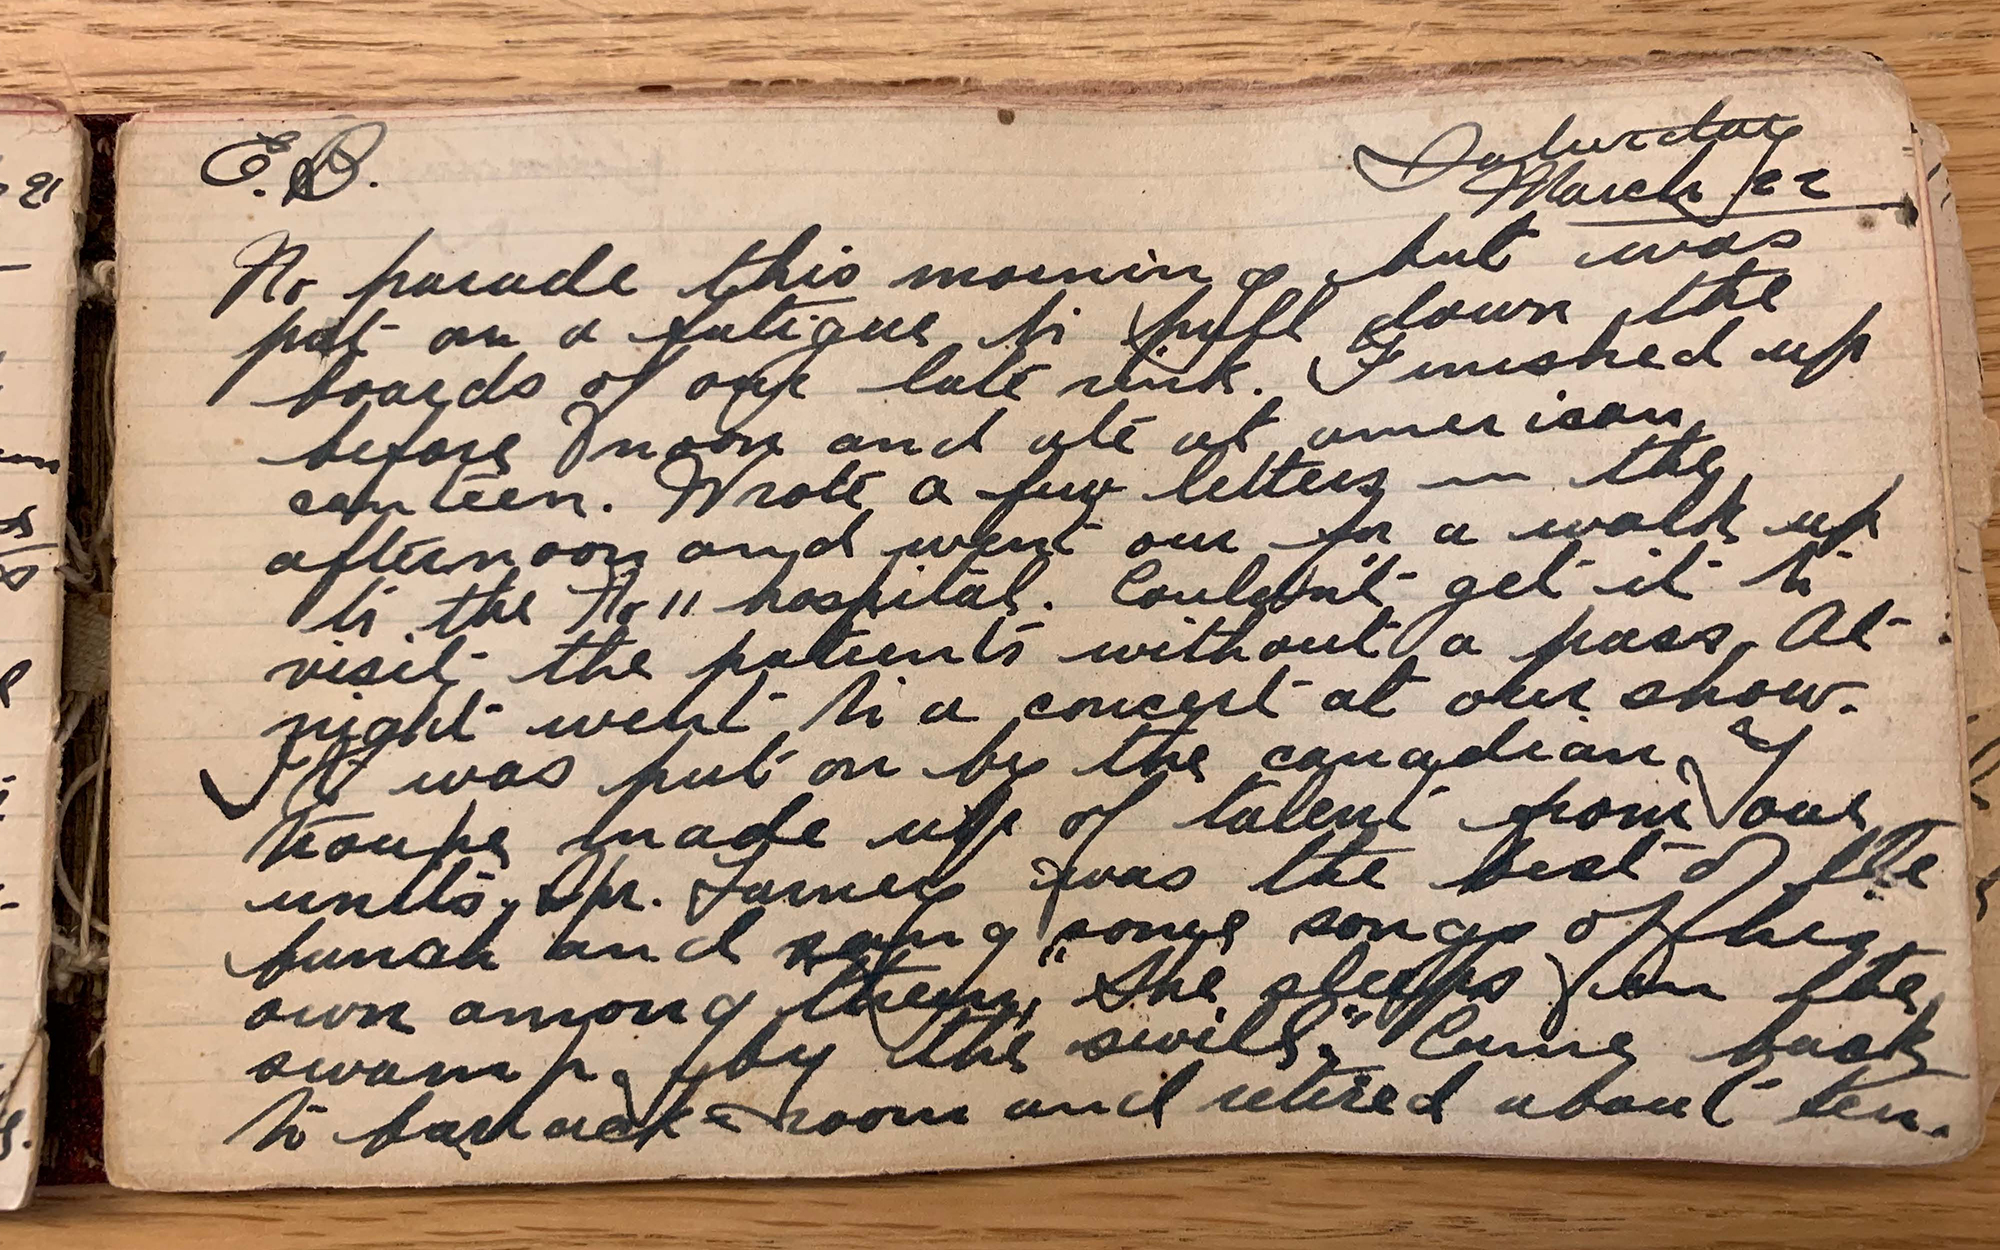 E.B.
Saturday
March 22
No parade this morning, but was
put on a fatigue to pull down the
boards of our late rink. Finished up
before noon and ate at american
canteen. Wrote a few letters in the
afternoon and went our for a walk up
to the No 11 hospital. Couldn't get it to
visit the patients without a pass. At
night went to a concert at our show.
It was put on by the canadian Y
troupe made up of talent from our
units. Spr. Turney was the best of the
bunch and sang some songs of his
own among them, "She sleeps in the
swamp, by the swill." Came back
to barrack-room and retired about ten.